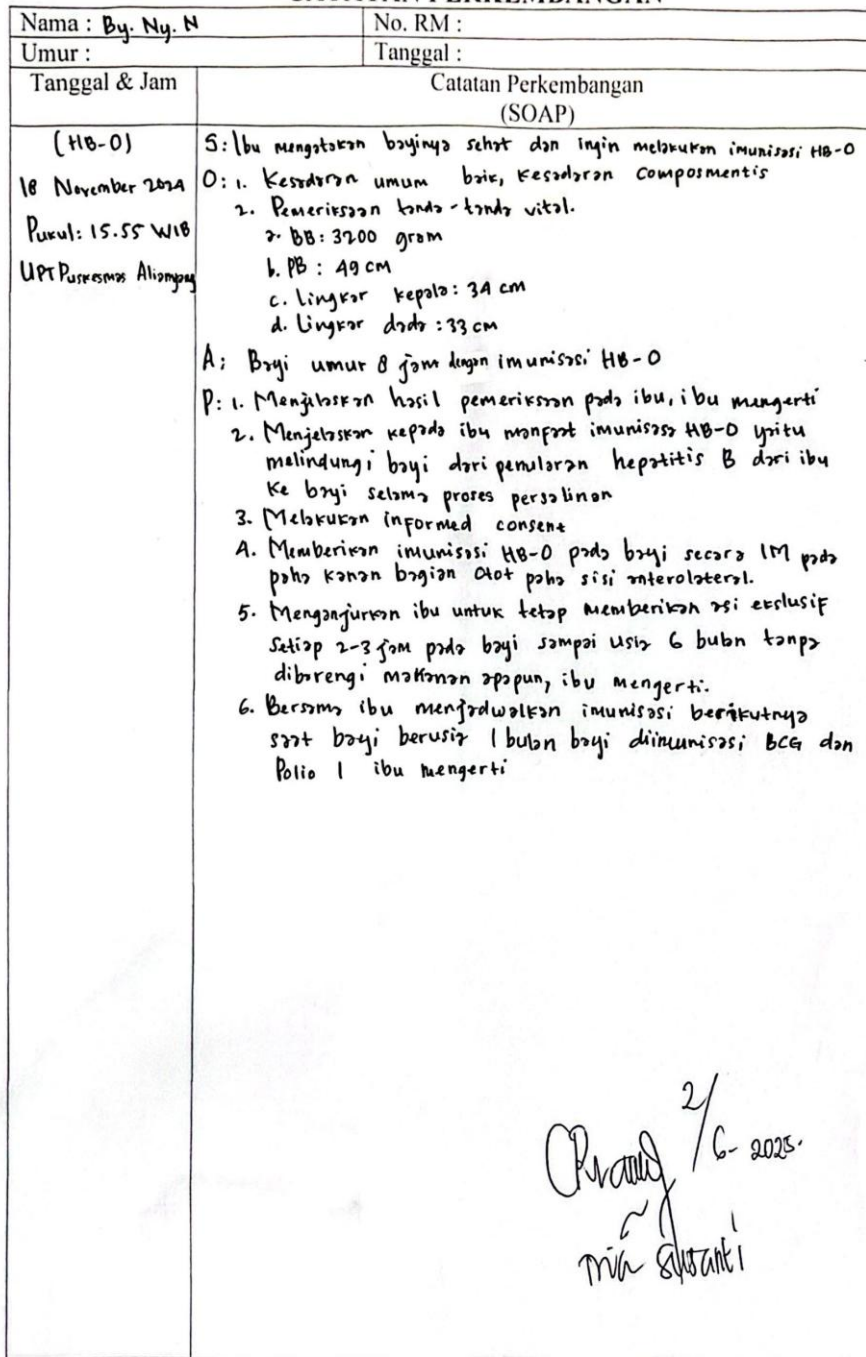 CATATAN PERKEMBANGAN
Nama : By. Ny. N No. RM :
Umur : Tanggal :
Tanggal & Jam Catatan Perkembangan
(SOAP)
(HB-0)
18 November 2024
Pukul: 15.55 WIB
UPT Puskesmas Aliampang
S: Ibu mengatakan bayinya sehat dan ingin melakukan imunisasi HB-0
O: 1. Kesadaran umum baik, Kesadaran Composmentis
2. Pemeriksaan tanda-tanda vital.
a. BB: 3200 gram
b. PB : 49 cm
c. Lingkar kepala: 34 cm
d. Lingkar dada : 33 cm
A: Bayi umur 8 jam dengan imunisasi HB-0
P: 1. Menjelaskan hasil pemeriksaan pada ibu, ibu mengerti
2. Menjelaskan kepada ibu manfaat imunisasi HB-0 yaitu
melindungi bayi dari penularan hepatitis B dari ibu
ke bayi selama proses persalinan
3. Melakukan informed consent
4. Memberikan imunisasi HB-0 pada bayi secara IM pada
paha kanan bagian otot paha sisi anterolateral.
5. Menganjurkan ibu untuk tetap memberikan asi exclusif
Setiap 2-3 jam pada bayi sampai usia 6 bulan tanpa
dibarengi makanan apapun, ibu mengerti.
6. Bersama ibu menjadwalkan imunisasi berikutnya
saat bayi berusia 1 bulan bayi diimunisasi BCG dan
Polio 1 ibu mengerti
2/6-2025.